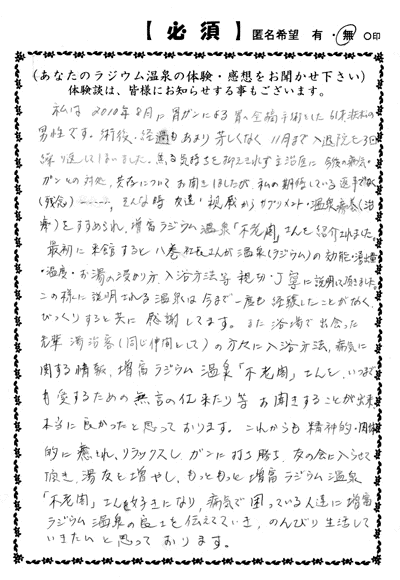 【必須】 匿名希望 有・無 ○印
(あなたのラジウム温泉の体験・感想をお聞かせ下さい)
体験談は、皆様にお知らせする事もございます。
私は2010年8月に胃ガンによる胃の全摘手術をした61才
男性です。術後、経過もあまり芳しくなく11月まで入退院を3回
繰り返してしまいました。焦る気持ちを抑えきれず主治医に今後の病気・
ガンとの対処、共存についてお聞きしましたが、私の期待している返事でなく
(残念)そんな時、友達・親戚からサプリメント・温泉療養(治
療)をすすめられ、増富ラジウム温泉「不老閣」さんを紹介されました。
最初に来館すると八巻社長さんが温泉(ラジウム)の効能・湯量
・温度・お湯の浸かり方、入浴方法等親切・丁寧に説明して頂きました。
この様に説明される温泉は今まで一度も経験したことがなく、
びっくりすると共に感謝してます。また浴場で出会った
先輩湯治客(同じ仲間として)の方々に入浴方法、病気に
関する情報、増富ラジウム温泉「不老閣」さんを、いつまで
も愛するための無言の仕来たり等お聞きすることが出来、
本当に良かったと思っております。これからも精神的・肉体
的に癒され、リラックスしガンに打ち勝ち、友の会に入らせて
頂き、湯友を増やし、もっともっと増富ラジウム温泉
「不老閣」さんを好きになり、病気で困っている人達に増富
ラジウム温泉の良さを伝えてていき、のんびり生活して
いきたいと思っております。